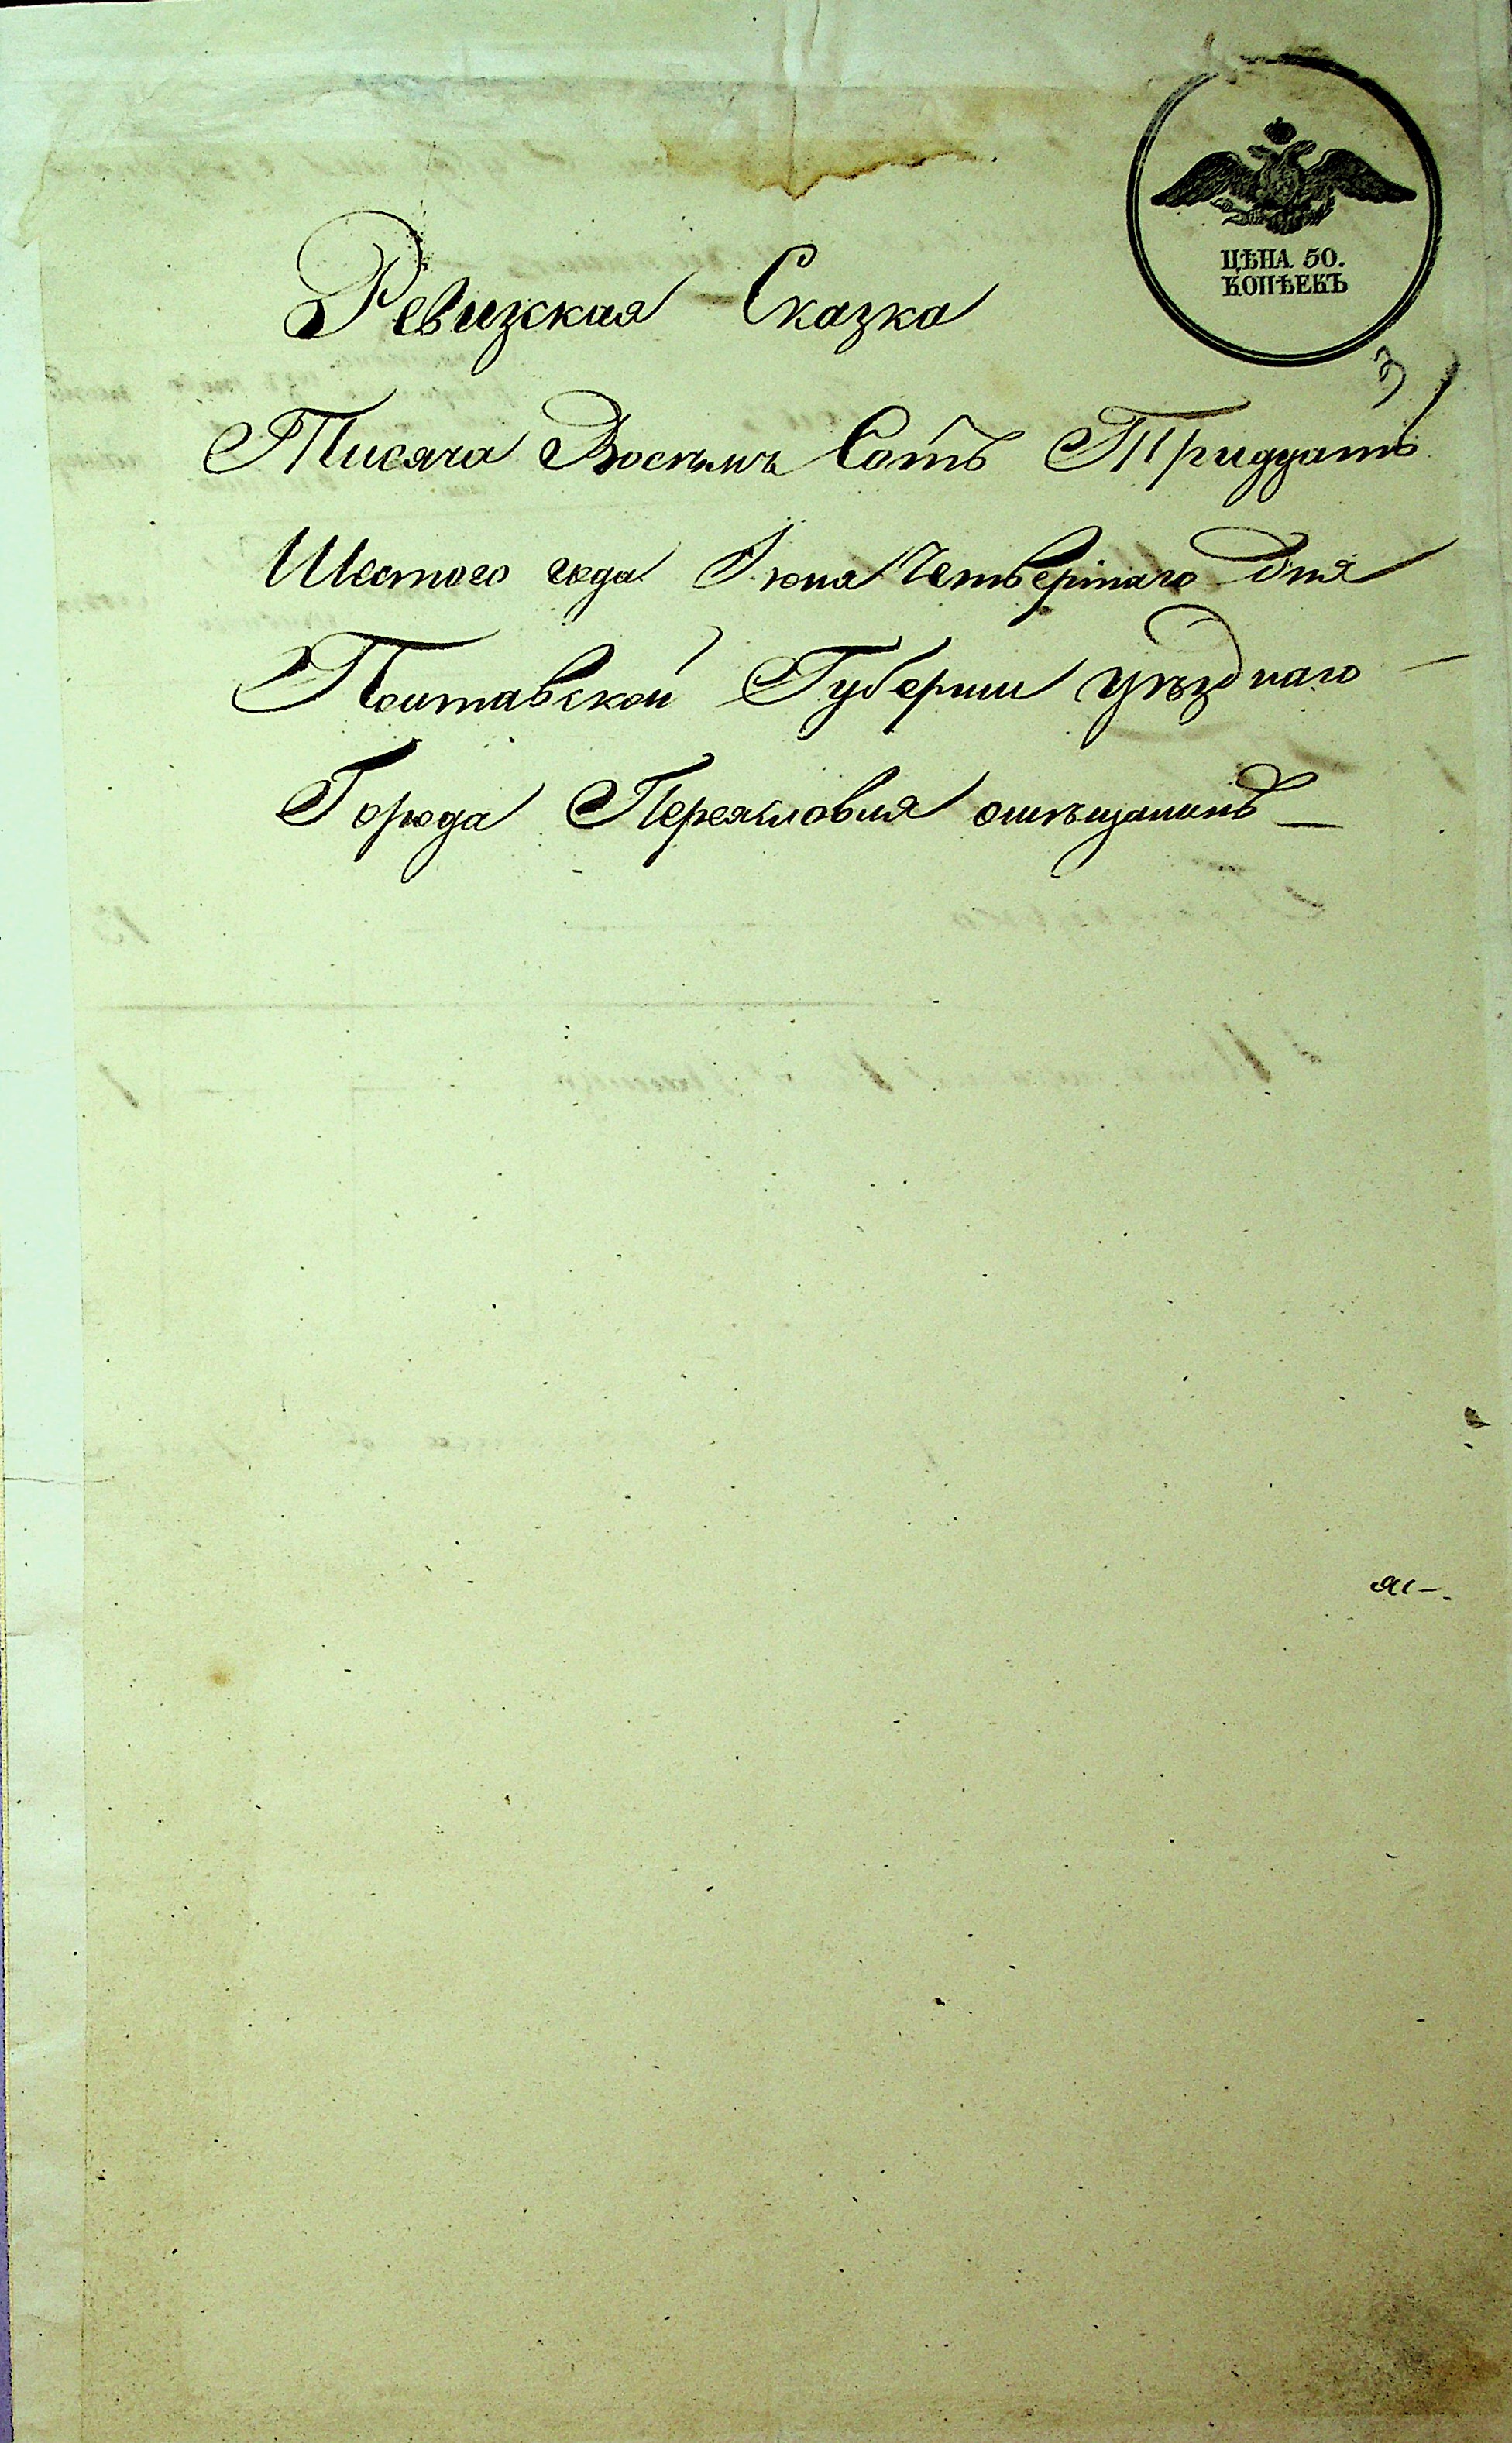 ЦѢНА 50.
КОПѢЕКЪ
Ревизская Сказка
Тисяча Восѣмъ Сотъ Тридцать
Шестого года Іюня Четвертаго дня
Полтавской Губернии уѣзднаго
Города Переяслов­ля омѣщанинѣ